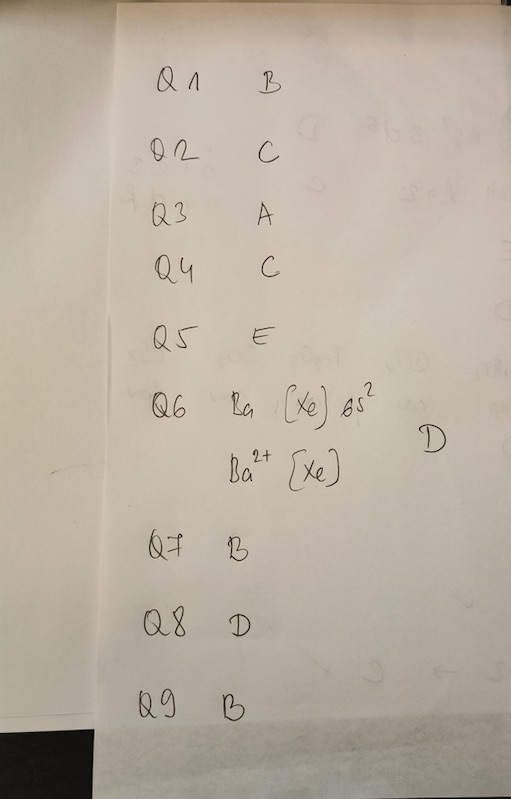 Q1 B
Q2 C
Q3 A
Q4 C
Q5 E
Q6 Ba [Xe] 6s²
D
Ba²⁺ [Xe]
Q7 B
Q8 D
Q9 B